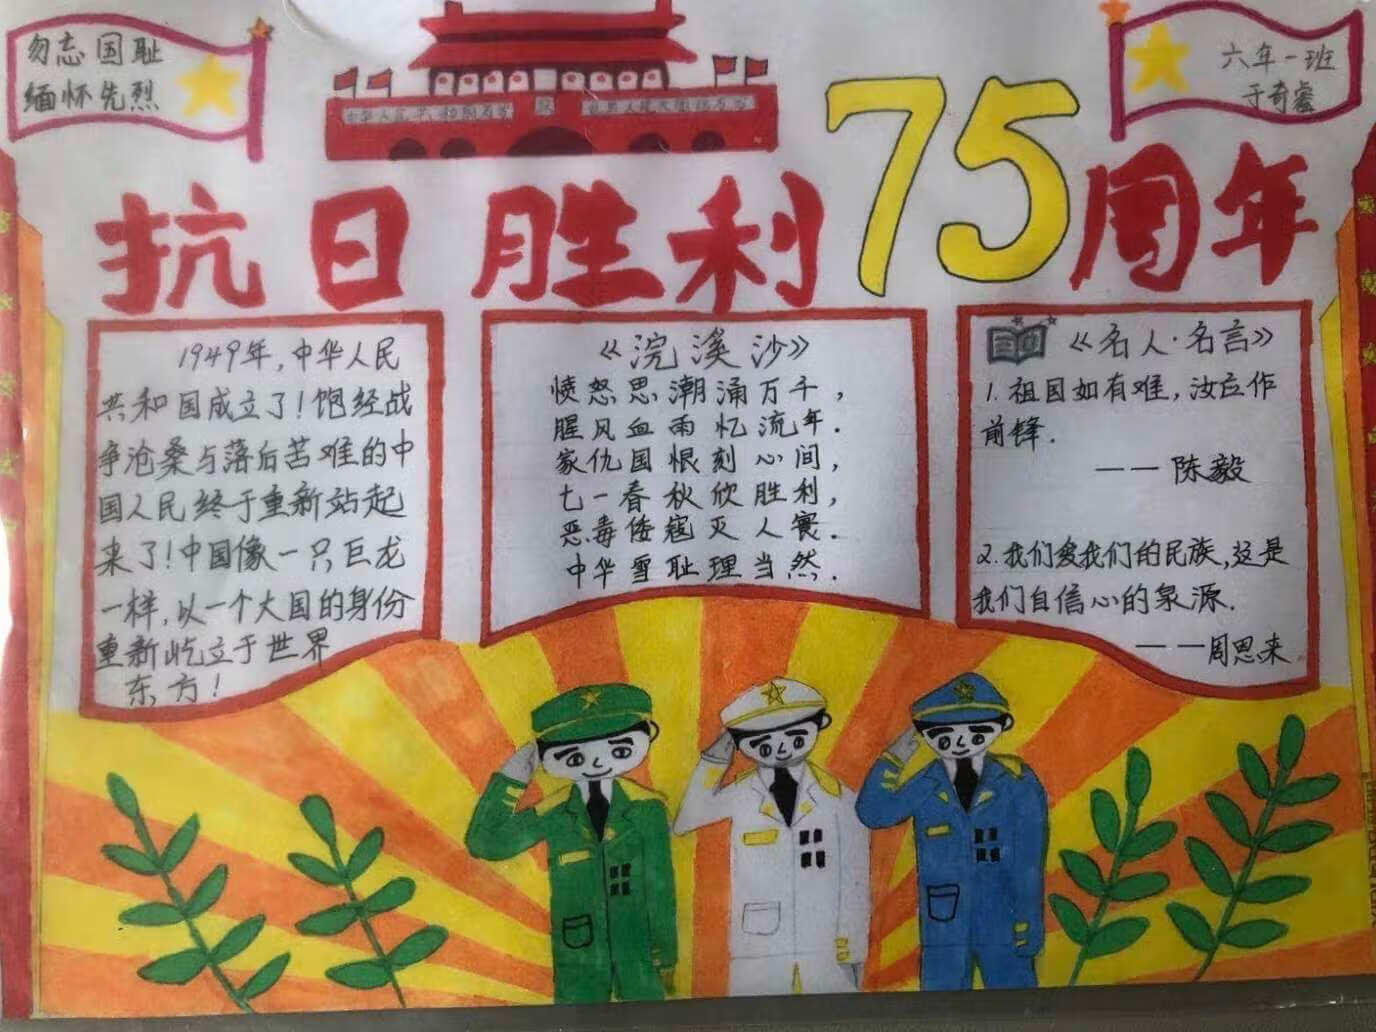 勿忘国耻
缅怀先烈
六年一班
于奇睿
中华人民共和国万岁
世界人民大团结万岁
抗日胜利75周年
1949年,中华人民
共和国成立了!饱经战
争沧桑与落后苦难的中
国人民终于重新站起
来了!中国像一只巨龙
一样,以一个大国的身份
重新屹立于世界
东方!
《浣溪沙》
愤怒思潮涌万千,
腥风血雨忆流年.
家仇国恨刻心间,
七一春秋欣胜利,
恶毒倭寇灭人寰.
中华雪耻理当然.
《名人·名言》
1.祖国如有难,汝应作
前锋.
——陈毅
2.我们爱我们的民族,这是
我们自信心的泉源.
——周恩来